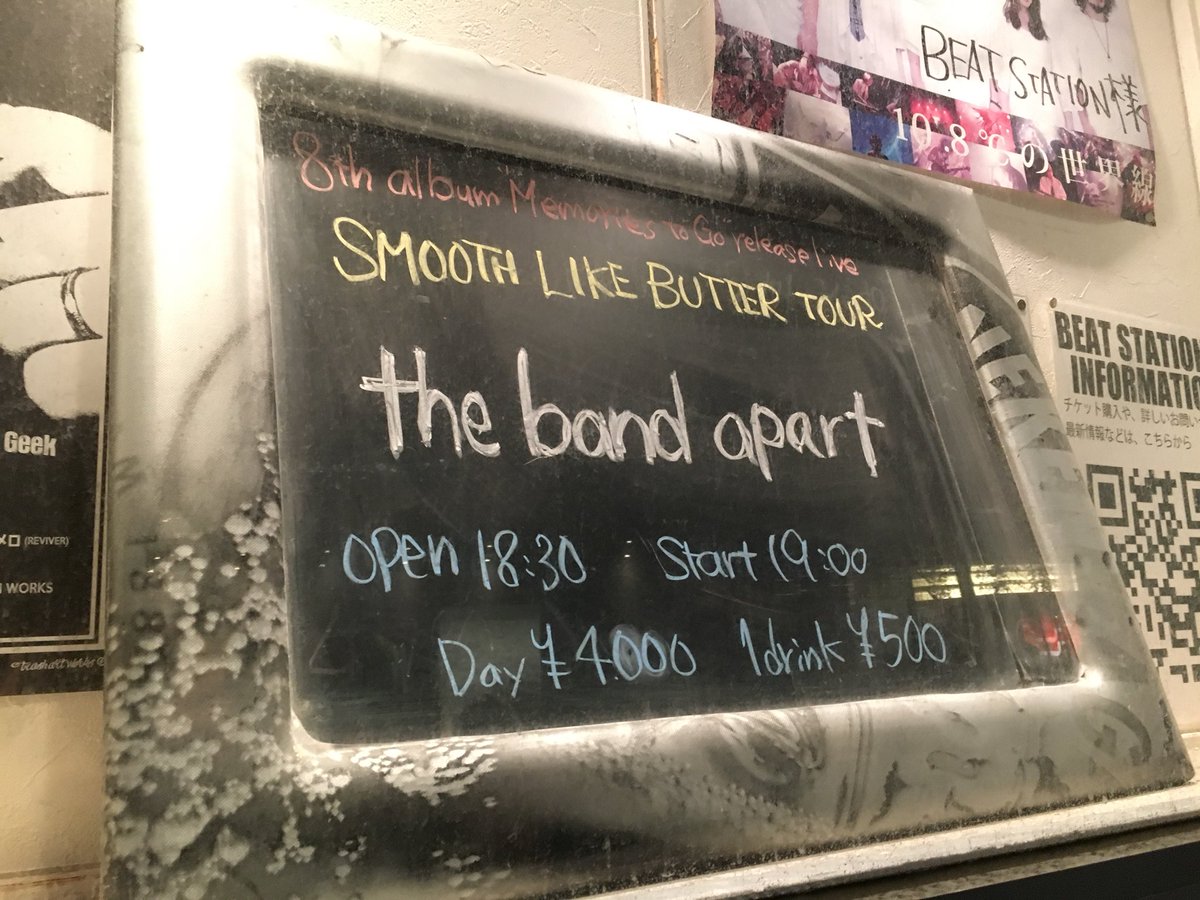 8th album "Memories to Go" release live
SMOOTH LIKE BUTTER TOUR
the band apart
open 18:30 start 19:00
Day ¥4.000 1drink ¥500
BEAT STATION様
10'.8℃の世界線
BEAT STATION
INFORMATIO
チケット購入や、詳しいお問い
最新情報などは、こちらから
Geek
(REVIVER)
WORKS